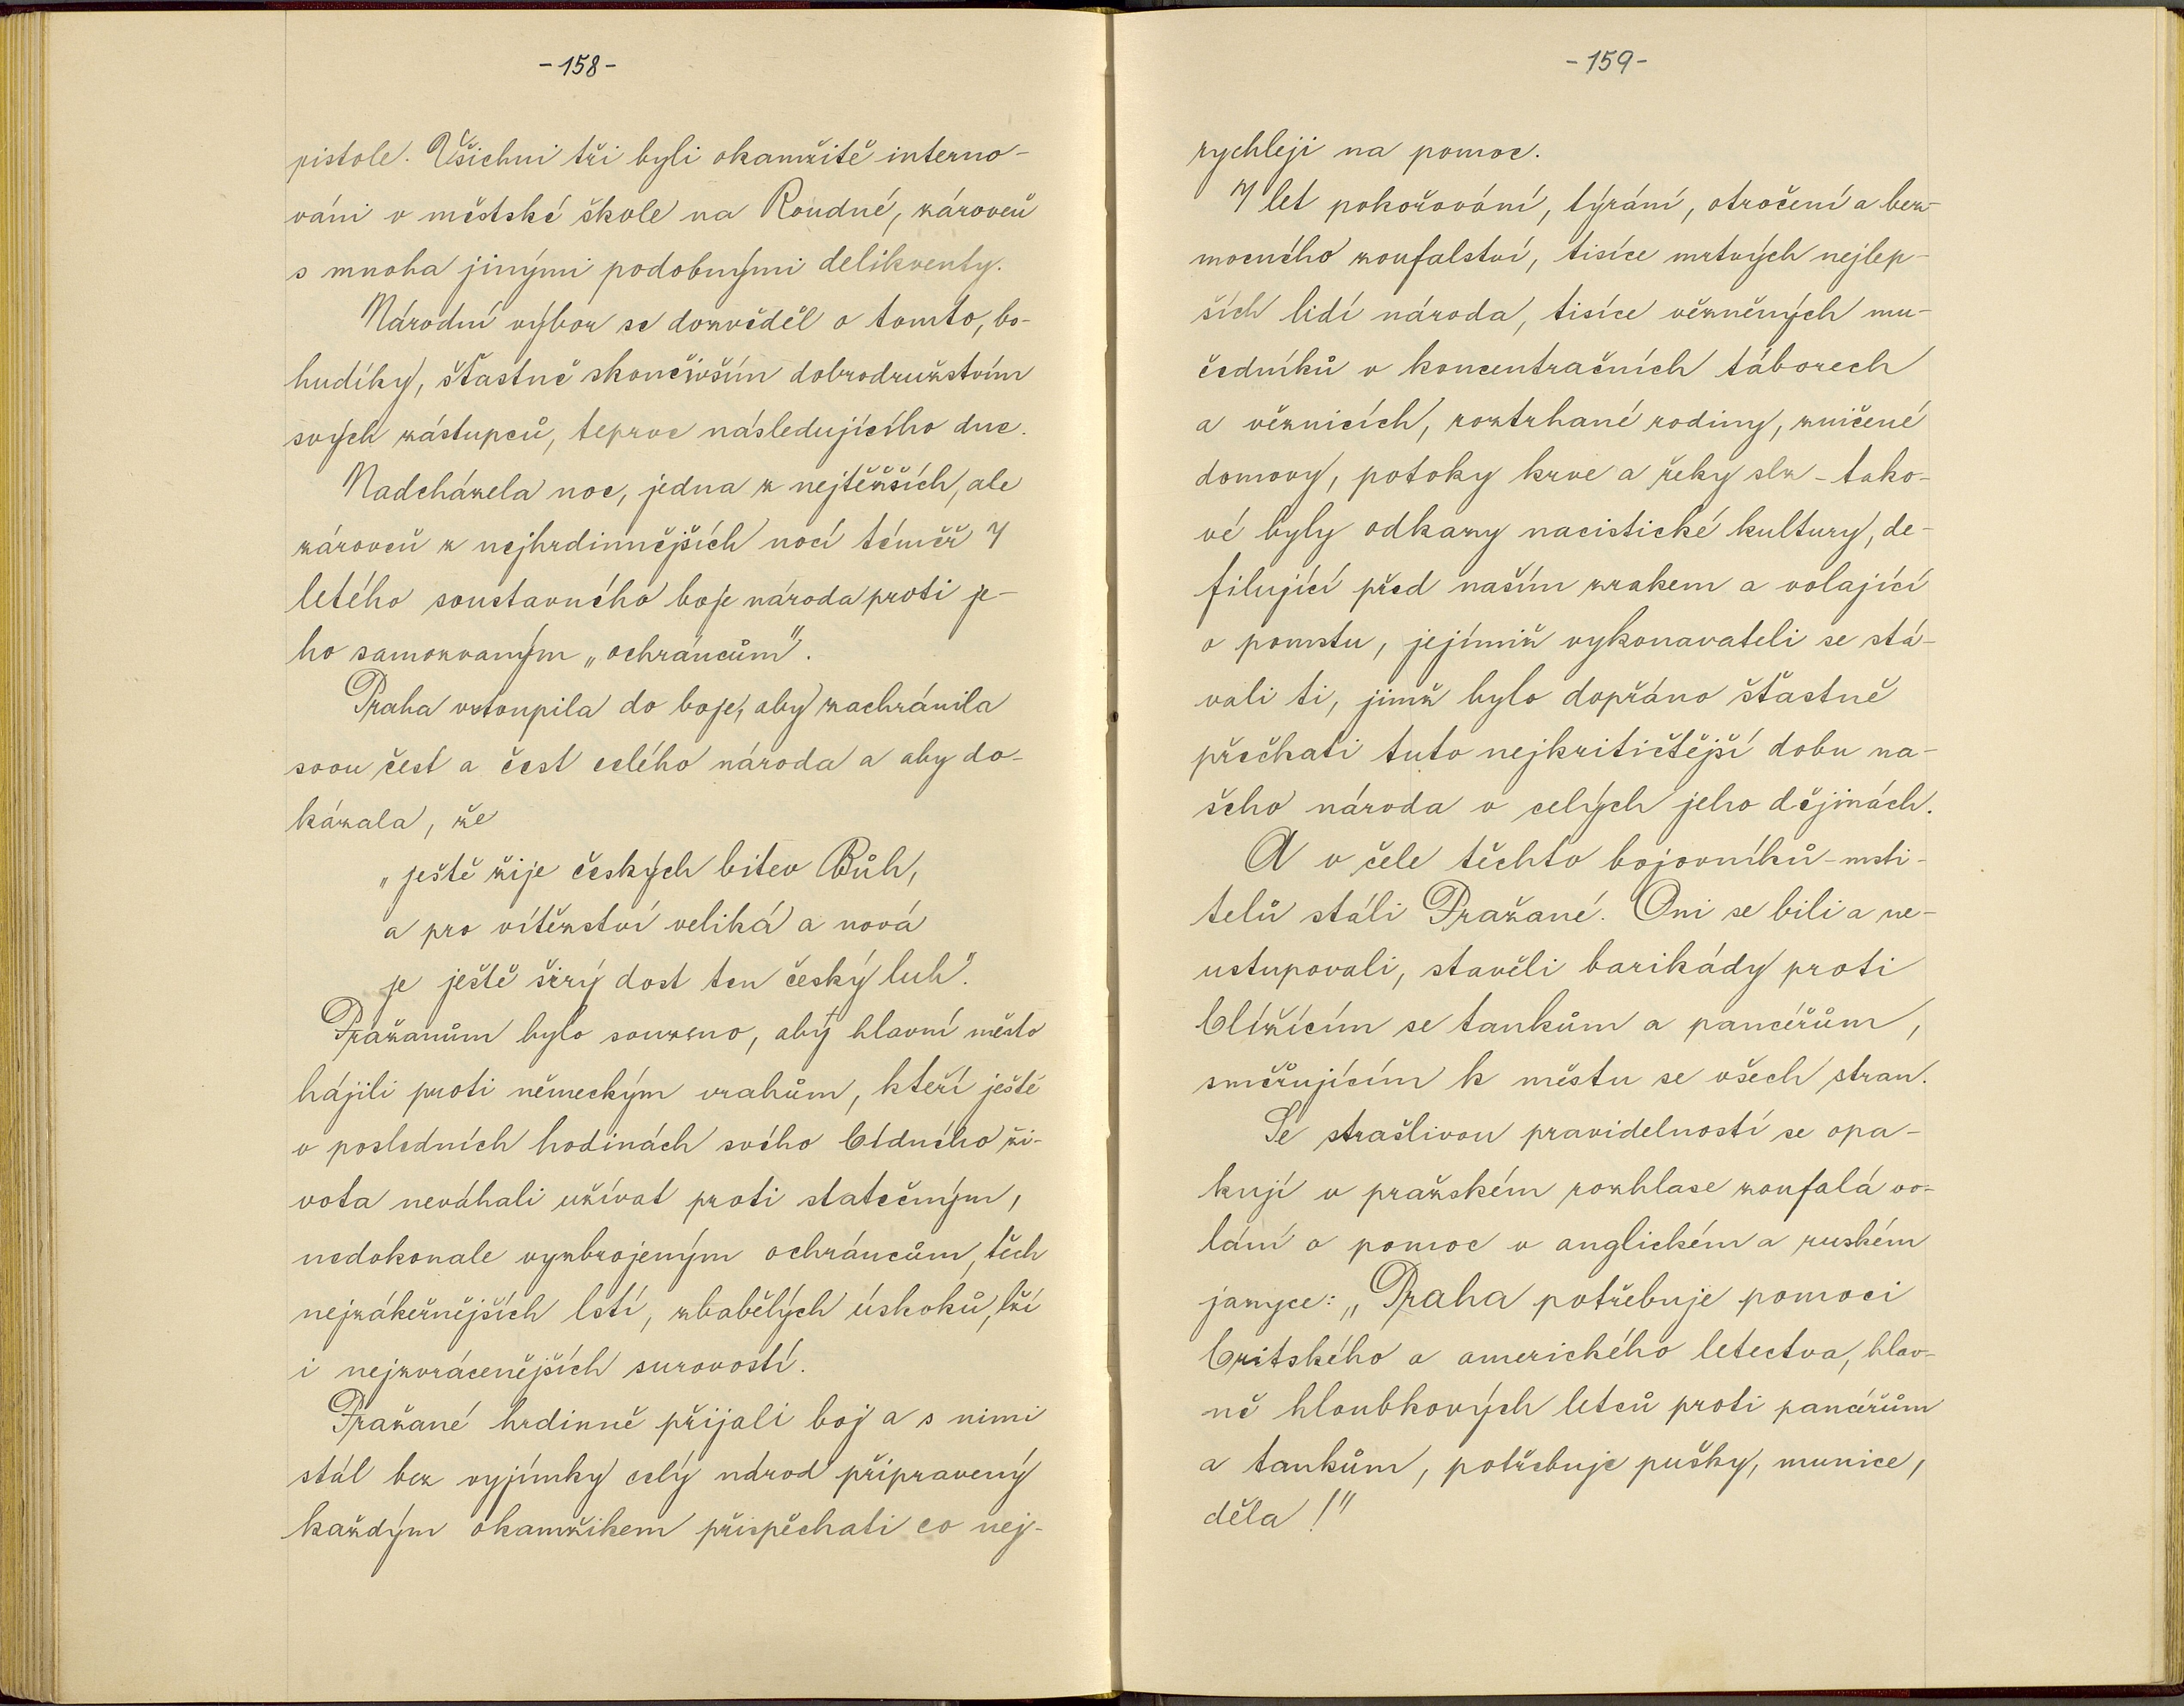 -158-
pistole. Všichni tři byli okamžitě interno-
váni v městské škole na Roudné, zároveň
s mnoha jinými podobnými delikventy.
Národní výbor se dozvěděl o tomto, bo-
hudíky, šťastně skončivším dobrodružstvím
svých zástupců, teprve následujícího dne.
Nadcházela noc, jedna z nejtěžších, ale
zároveň z nejhrdinnějších nocí téměř 7
letého soustavného boje národa proti je-
ho samozvaným „ochráncům".
Praha vstoupila do boje, aby zachránila
svou čest a čest celého národa a aby do-
kázala, že
„ještě žije českých bitev Bůh,
a pro vítězství veliká a nová
je ještě širý dost ten český luh".
Pražanům bylo souzeno, aby hlavní město
hájili proti německým vrahům, kteří ještě
v posledních hodinách svého bídného ži-
vota neváhali užívat proti statečným,
nedokonale vyzbrojeným ochráncům, těch
nejzákeřnějších lstí, zbabělých úskoků, lží
i nejzvrácenějších surovostí.
Pražané hrdinně přijali boj a s nimi
stál bez vyjímky celý národ připravený
každým okamžikem přispěchati co nej-
-159-
rychleji na pomoc.
7 let pokořování, týrání, otročení a bez-
mocného zoufalství, tisíce mrtvých nejlep-
ších lidí národa, tisíce vězněných mu-
čedníků v koncentračních táborech
a věznicích, roztrhané rodiny, zničené
domovy, potoky krve a řeky slz - tako-
vé byly odkazy nacistické kultury, de-
filující před naším zrakem a volající
o pomstu, jejímiž vykonavateli se stá-
vali ti, jimž bylo dopřáno šťastně
přečkati tuto nejkritičtější dobu na-
šeho národa v celých jeho dějinách.
A v čele těchto bojovníků - msti-
telů stáli Pražané. Oni se bili a ne-
ustupovali, stavěli barikády proti
blížícím se tankům a pancéřům,
směřujícím k městu se všech stran.
Se strašlivou pravidelností se opa-
kují v pražském rozhlase zoufalá vo-
lání o pomoc v anglickém a ruském
jazyce: „Praha potřebuje pomoci
britského a amerického letectva, hlav-
ně hloubkových letců proti pancéřům
a tankům, potřebuje pušky, munice,
děla!"